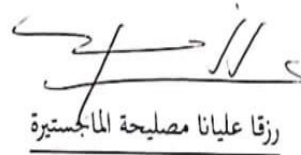 رزقا عليانا مصليحة الماجستيرة